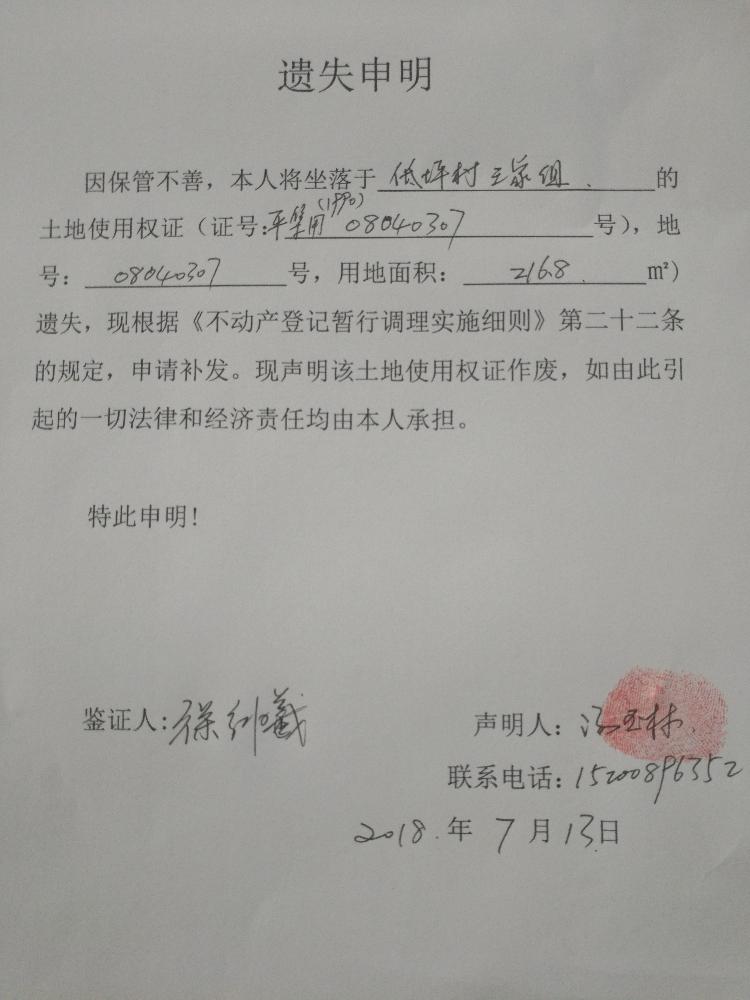 遗失申明
因保管不善，本人将坐落于低坪村王家组的
土地使用权证（证号:平集用(1990)08040307号），地
号：08040307号，用地面积：216.8㎡）
遗失，现根据《不动产登记暂行调理实施细则》第二十二条
的规定，申请补发。现声明该土地使用权证作废，如由此引
起的一切法律和经济责任均由本人承担。
特此申明！
鉴证人:
声明人：
联系电话：15200896352
2018.年7月13日